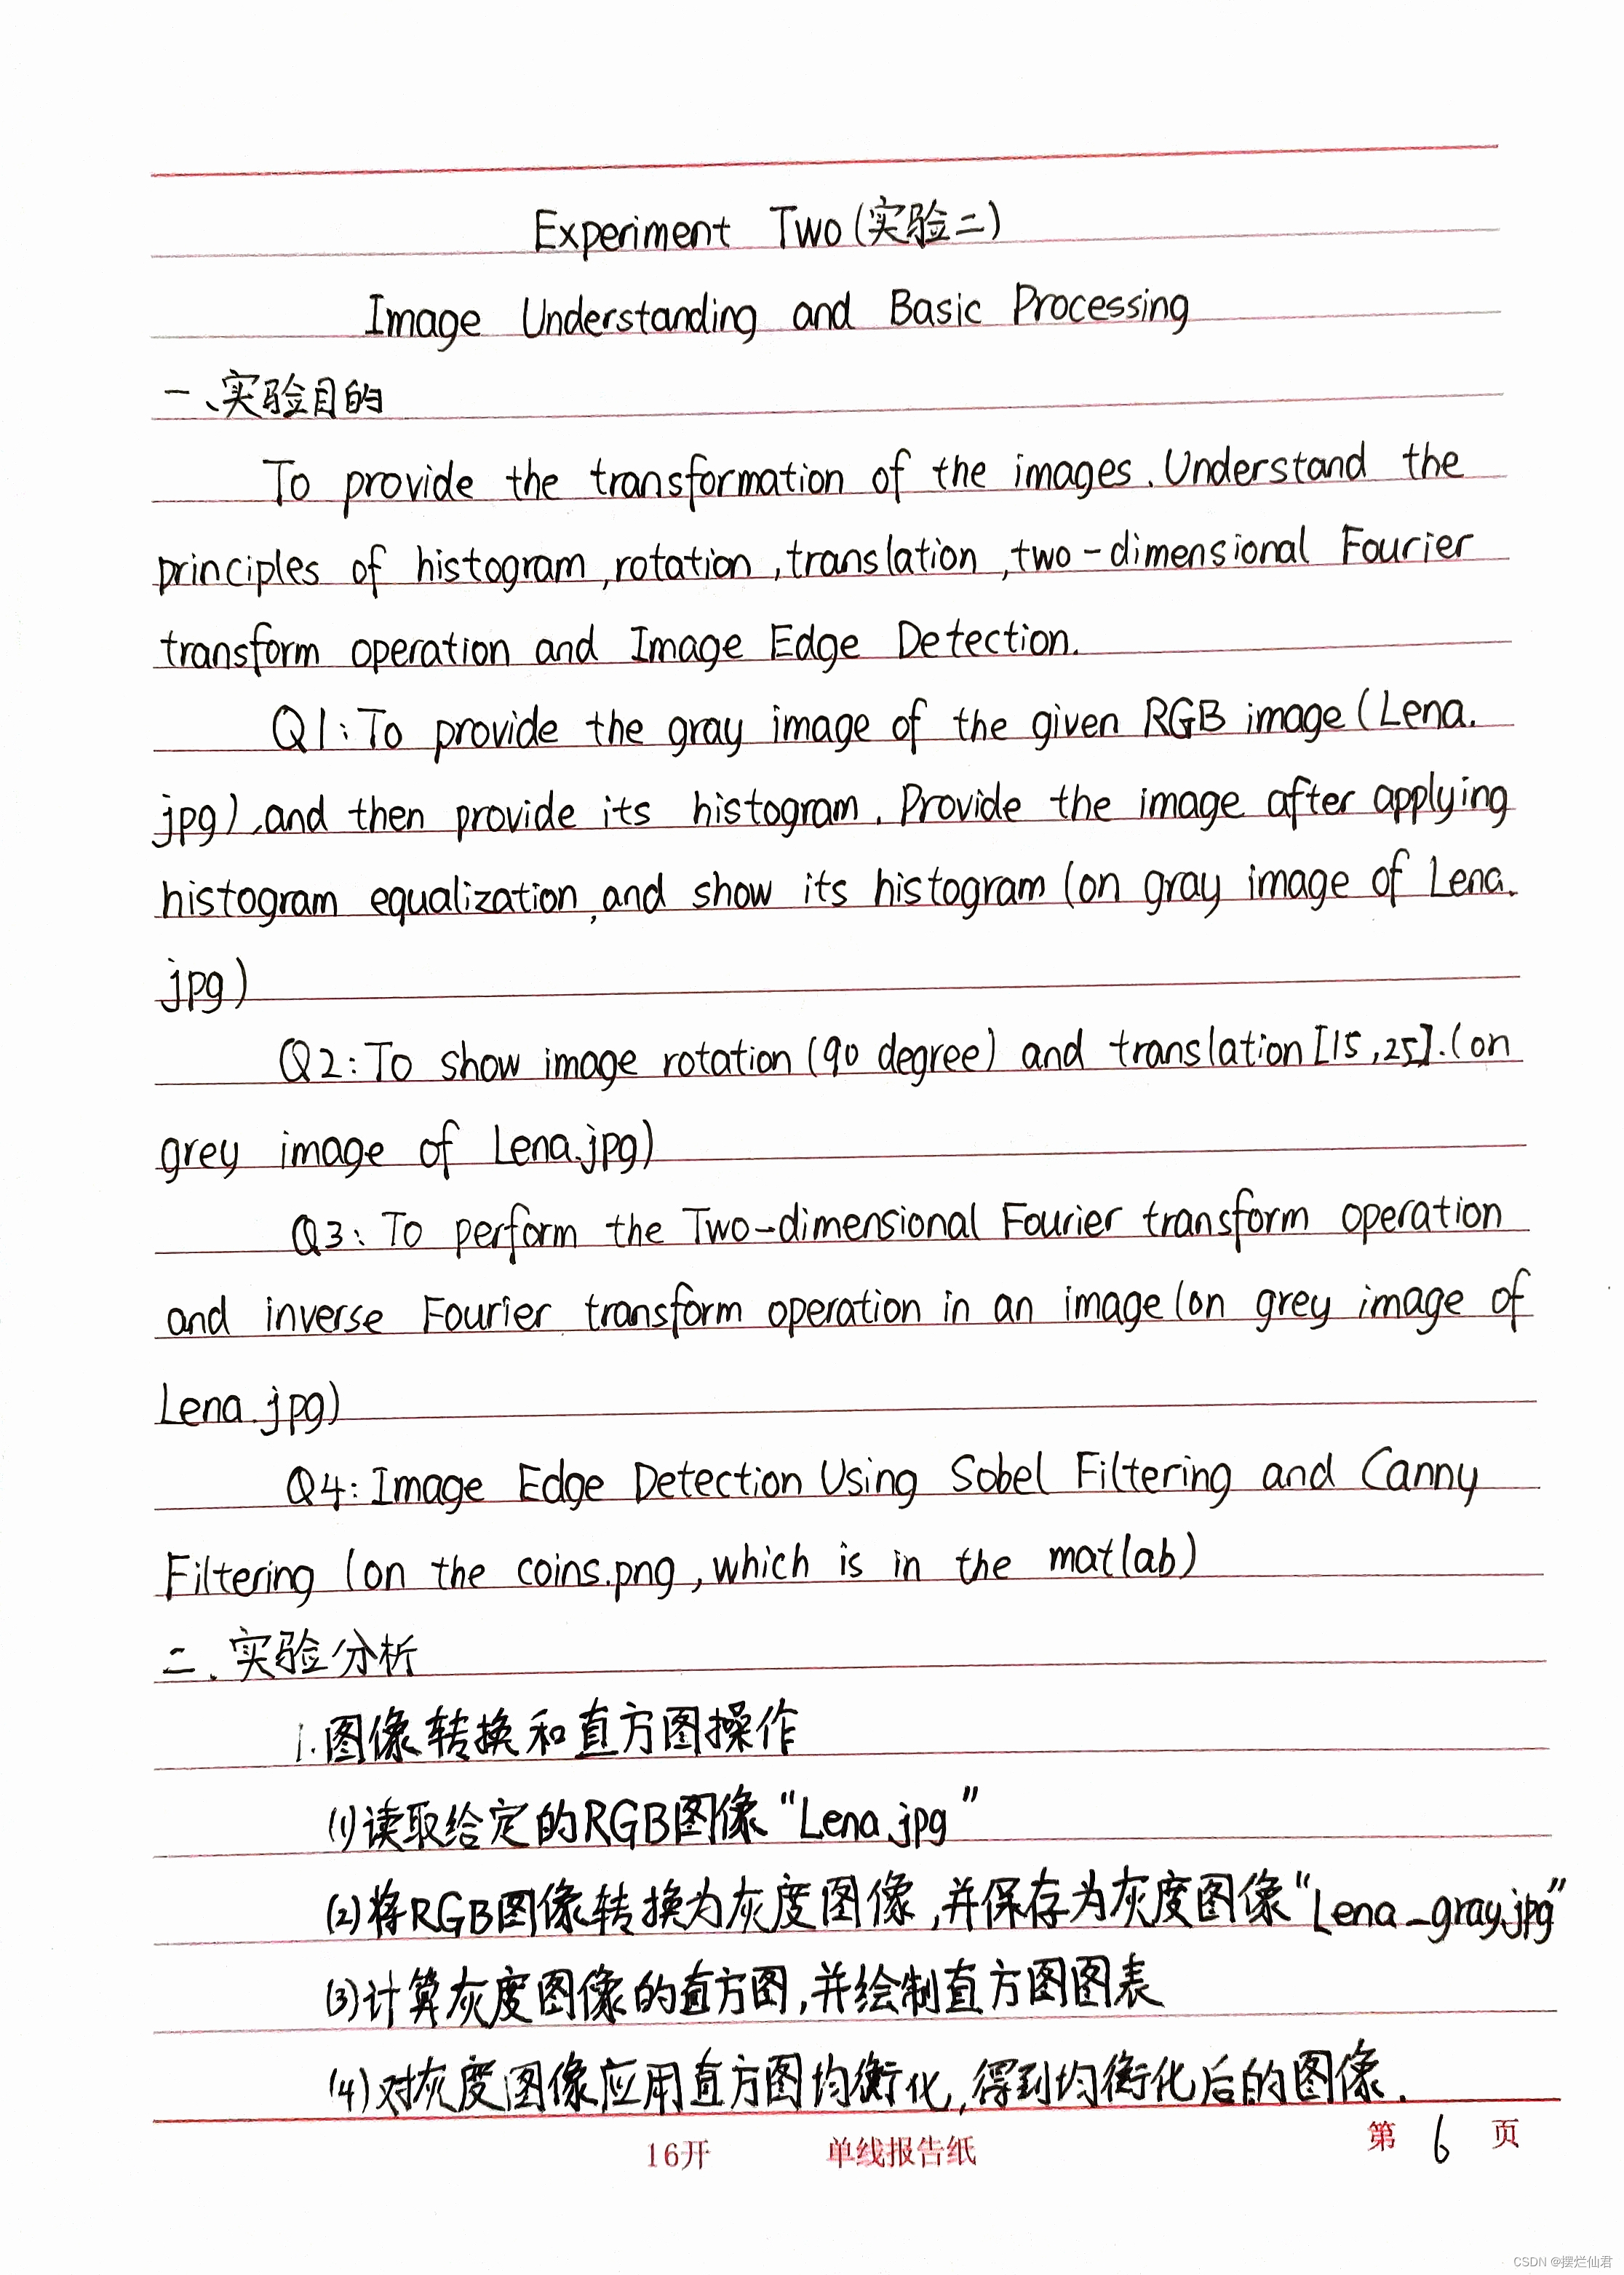 Experiment Two(实验二)
Image Understanding and Basic Processing
一、实验目的
To provide the transformation of the images.Understand the
principles of histogram,rotation,translation,two-dimensional Fourier
transform operation and Image Edge Detection.
Q1:To provide the gray image of the given RGB image(Lena.
jpg),and then provide its histogram.Provide the image after applying
histogram equalization,and show its histogram(on gray image of Lena.
jpg)
Q2:To show image rotation(90 degree) and translation[15,25].(on
grey image of Lena.jpg)
Q3:To perform the Two-dimensional Fourier transform operation
and inverse Fourier transform operation in an image(on grey image of
Lena.jpg)
Q4:Image Edge Detection Using Sobel Filtering and Canny
Filtering (on the coins.png,which is in the matlab)
二.实验分析
1.图像转换和直方图操作
(1)读取给定的RGB图像“Lena.jpg”
(2)将RGB图像转换为灰度图像,并保存为灰度图像“Lena_gray.jpg”
(3)计算灰度图像的直方图,并绘制直方图图表
(4)对灰度图像应用直方图均衡化,得到均衡化后的图像.
16开 单线报告纸 第 6 页
CSDN @摆烂仙君